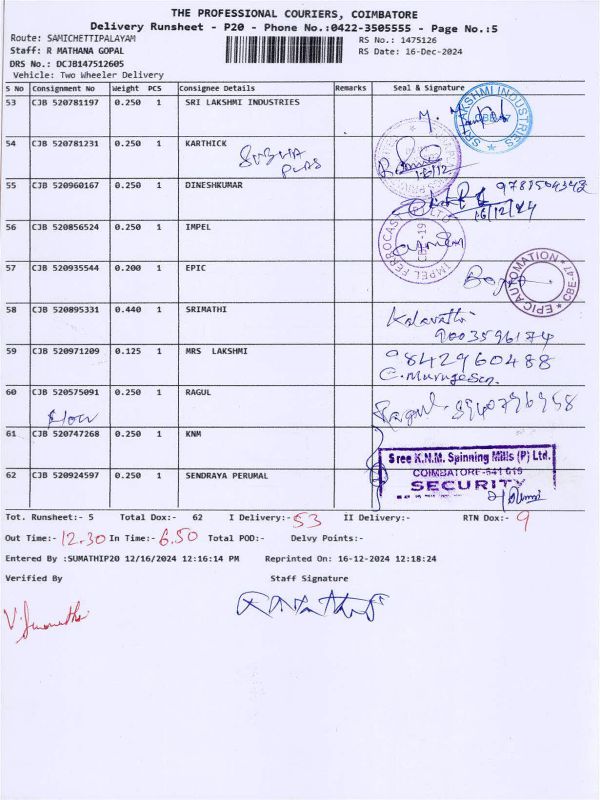 THE PROFESSIONAL COURIERS, COIMBATORE
Delivery Runsheet - P20 - Phone No.:0422-3505555 - Page No.:5
Route: SAMICHETTIPALAYAM
RS No.: 1475126
Staff: R MATHANA GOPAL
RS Date: 16-Dec-2024
DRS No.: DCJB147512605
Vehicle: Two Wheeler Delivery
S No Consignment No Weight PCS Consignee Details Remarks Seal & Signature
53 CJB 520781197 0.250 1 SRI LAKSHMI INDUSTRIES
LAKSHMI INDUSTRIES
54 CJB 520781231 0.250 1 KARTHICK
SUBHA
PLAS
16/12
55 CJB 520960167 0.250 1 DINESHKUMAR
16/12/24
56 CJB 520856524 0.250 1 IMPEL
IMPEL FERROCAST (P) LTD
CBE-19
57 CJB 520935544 0.200 1 EPIC
EPIC AUTOMATION * CBE-47
58 CJB 520895331 0.440 1 SRIMATHI
Kalavathi
9003596174
59 CJB 520971209 0.125 1 MRS LAKSHMI
9842960488
C. Murugesan.
60 CJB 520575091 0.250 1 RAGUL
Ragul. 8940796958
61 CJB 520747268 0.250 1 KNM
Sree K.N.M. Spinning Mills (P) Ltd.
COIMBATORE-641 019
SECURITY
62 CJB 520924597 0.250 1 SENDRAYA PERUMAL
Tot. Runsheet:- 5 Total Dox:- 62 I Delivery:- 53 II Delivery:- RTN Dox:- 9
Out Time:- 12.30 In Time:- 6.50 Total POD:- Delvy Points:-
Entered By :SUMATHIP20 12/16/2024 12:16:14 PM Reprinted On: 16-12-2024 12:18:24
Verified By Staff Signature